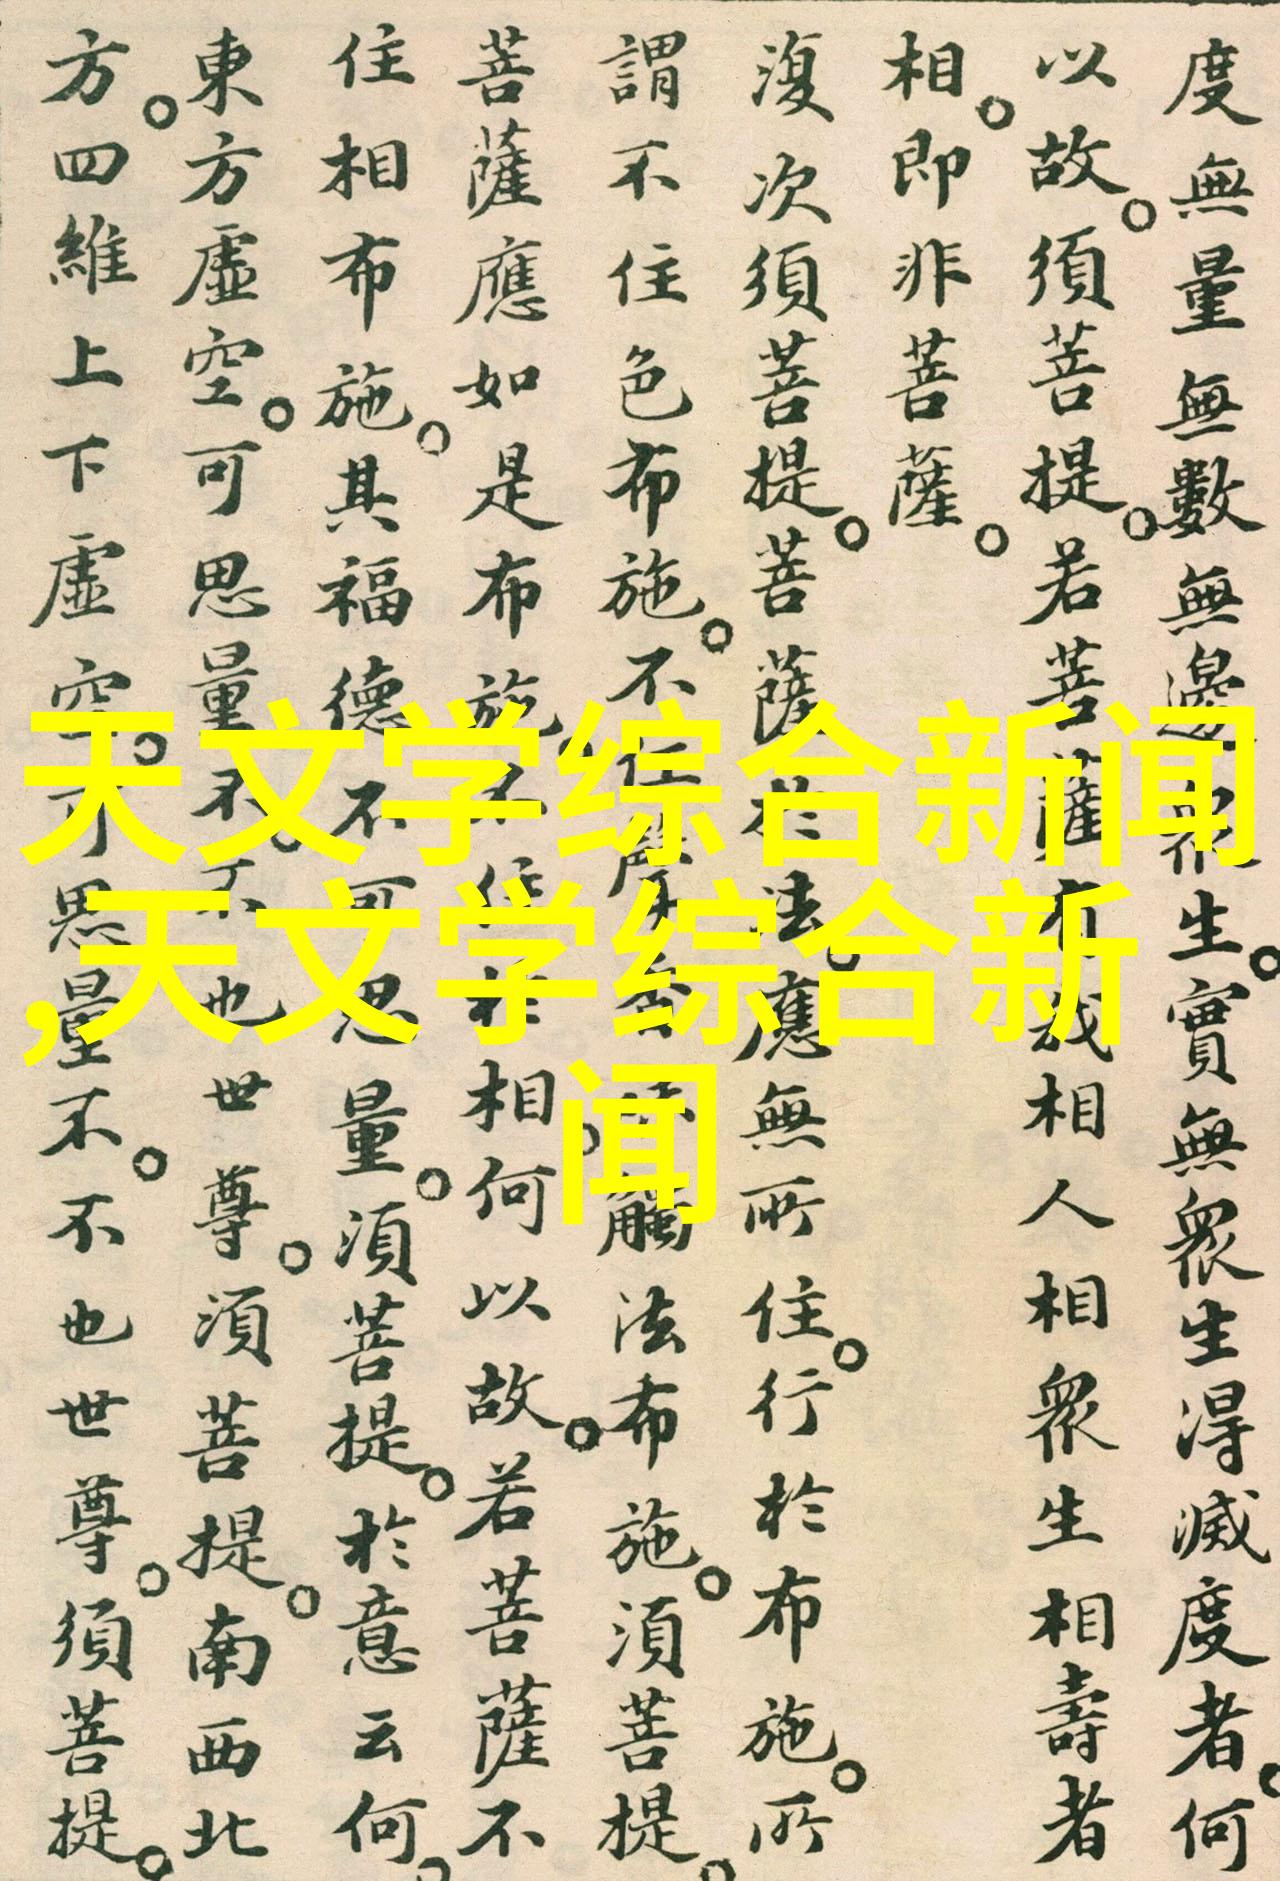 度無量無數無邊眾生。實無眾生得滅度者。何
以故。須菩提。若菩薩有我相人相眾生相壽者
相。即非菩薩。
復次須菩提。菩薩於法。應無所住。行於布施。所
謂不住色布施。不住聲香味觸法布施。須菩提。
菩薩應如是布施。不住於相。何以故。若菩薩不
住相布施。其福德不可思量。須菩提。於意云何。
東方虛空。可思量不。不也世尊。須菩提。南西北
方。四維上下虛空。可思量不。不也世尊。須菩提。
天文学综合新闻
,天文学综合新
闻